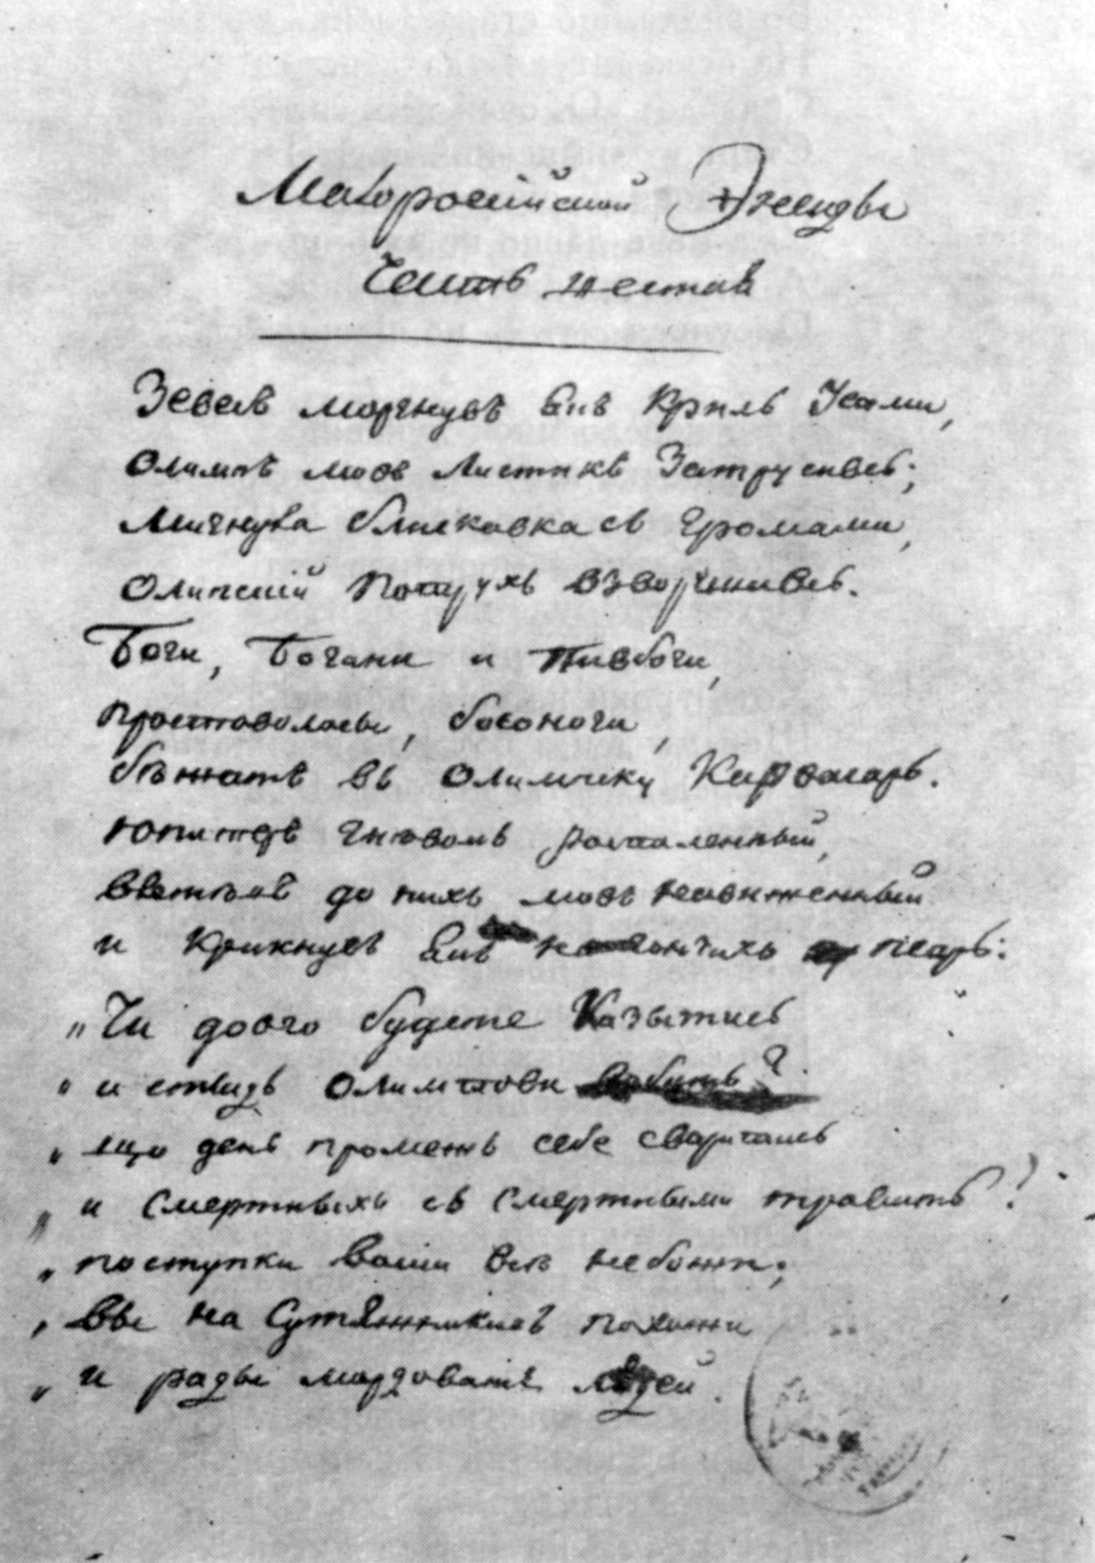 Малоросійской Энеиды
Часть шестая
Зевесъ моргнувъ вѣнъ Крѣль Усами,
Олимпъ мовъ Листикъ Затрусивсь;
Мигнула блискавка съ Громами,
Олимпскій Потрухъ взворушивсь.
Боги, Богини и Пивбоги,
простоволосы, босоноги,
бѣжать въ Олимпску Кардагарь.
Юпитеръ гнѣвомъ распаленный,
ввѣтѣвъ до нихъ мовъ навиженный
и Крикнувъ вѣнъ на гончихъ псарь:
„ Чи довго будете Казытись
„ и стыдъ Олимпови робить?
„ що день промежъ себе сваритись
„ и Смертныхъ съ Смертными травить?
„ поступки ваши всѣ небожи;
„ Вы на Сутяжникивъ похожи
„ и рады мордовать людей.